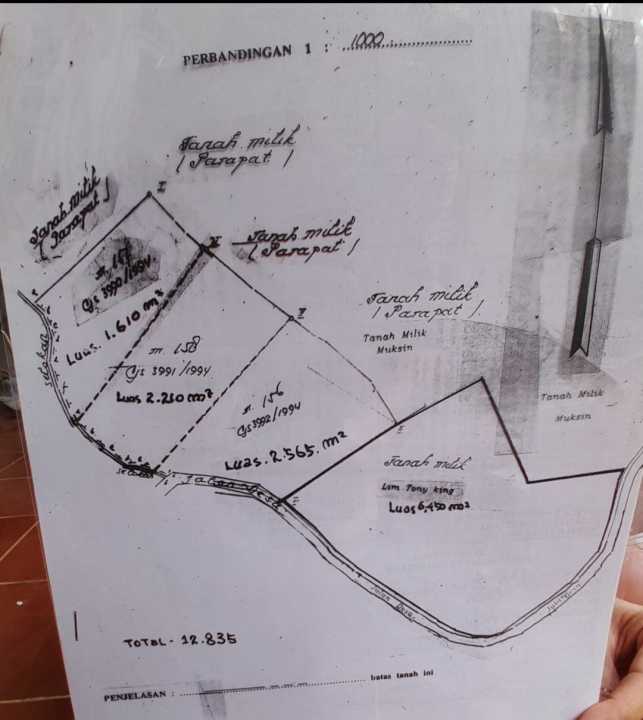 PERBANDINGAN 1 : 1000
Tanah milik
( Parapat )
Tanah milik
( Parapat )
I
IV
Tanah milik
( Parapat )
m. 157
Gs 3990/1994
Luas. 1.610 m²
V
Tanah milik
( Parapat )
Tanah Milik
Muksin
Tanah Milik
Muksin
selokan
m. 158
Gs 3991/1994
Luas 2.210 m²
m. 156
Gs 3992/1994
Luas. 2.565. m²
Tanah milik
Lim Tony king
Luas 6,450 m²
selokan
Jalan Desa
Jalan Desa
TOTAL - 12.835
PENJELASAN : batas tanah ini